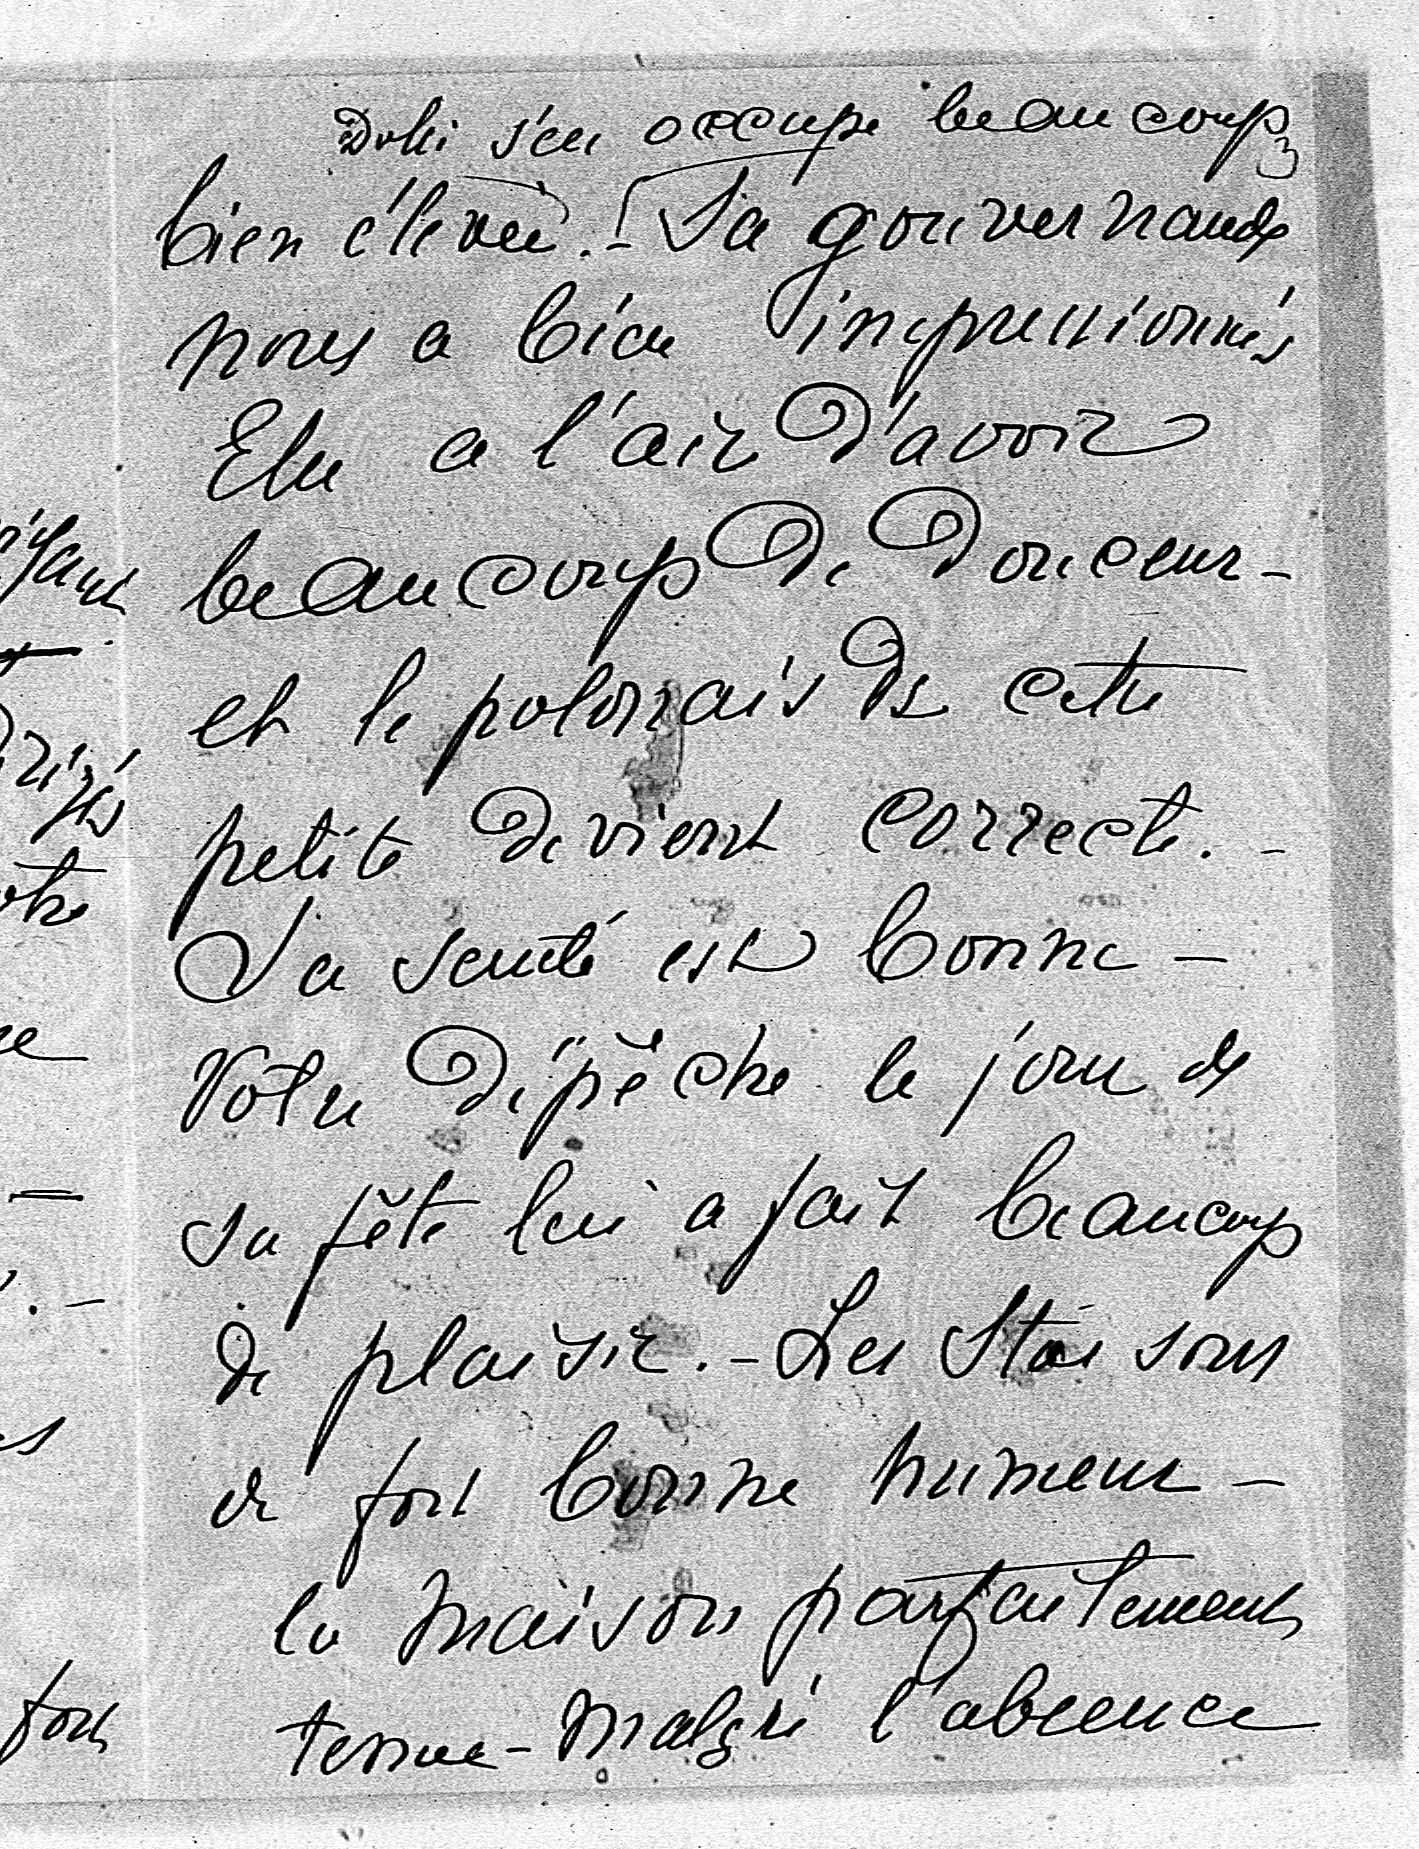 Doli s'en occupe beaucoup
bien élevée. - Sa gouvernante
nous a bien impressionnés
Elle a l'air d'avoir
beaucoup de douceur -
et le polonais de cette
petite devient correcte. -
Sa santé est bonne -
Votre dépêche le jour de
sa fête lui a fait beaucoup
de plaisir. - Les Stas sont
de fort bonne humeur -
la maison parfaitement
tenue - malgré l'absence
otre
fort